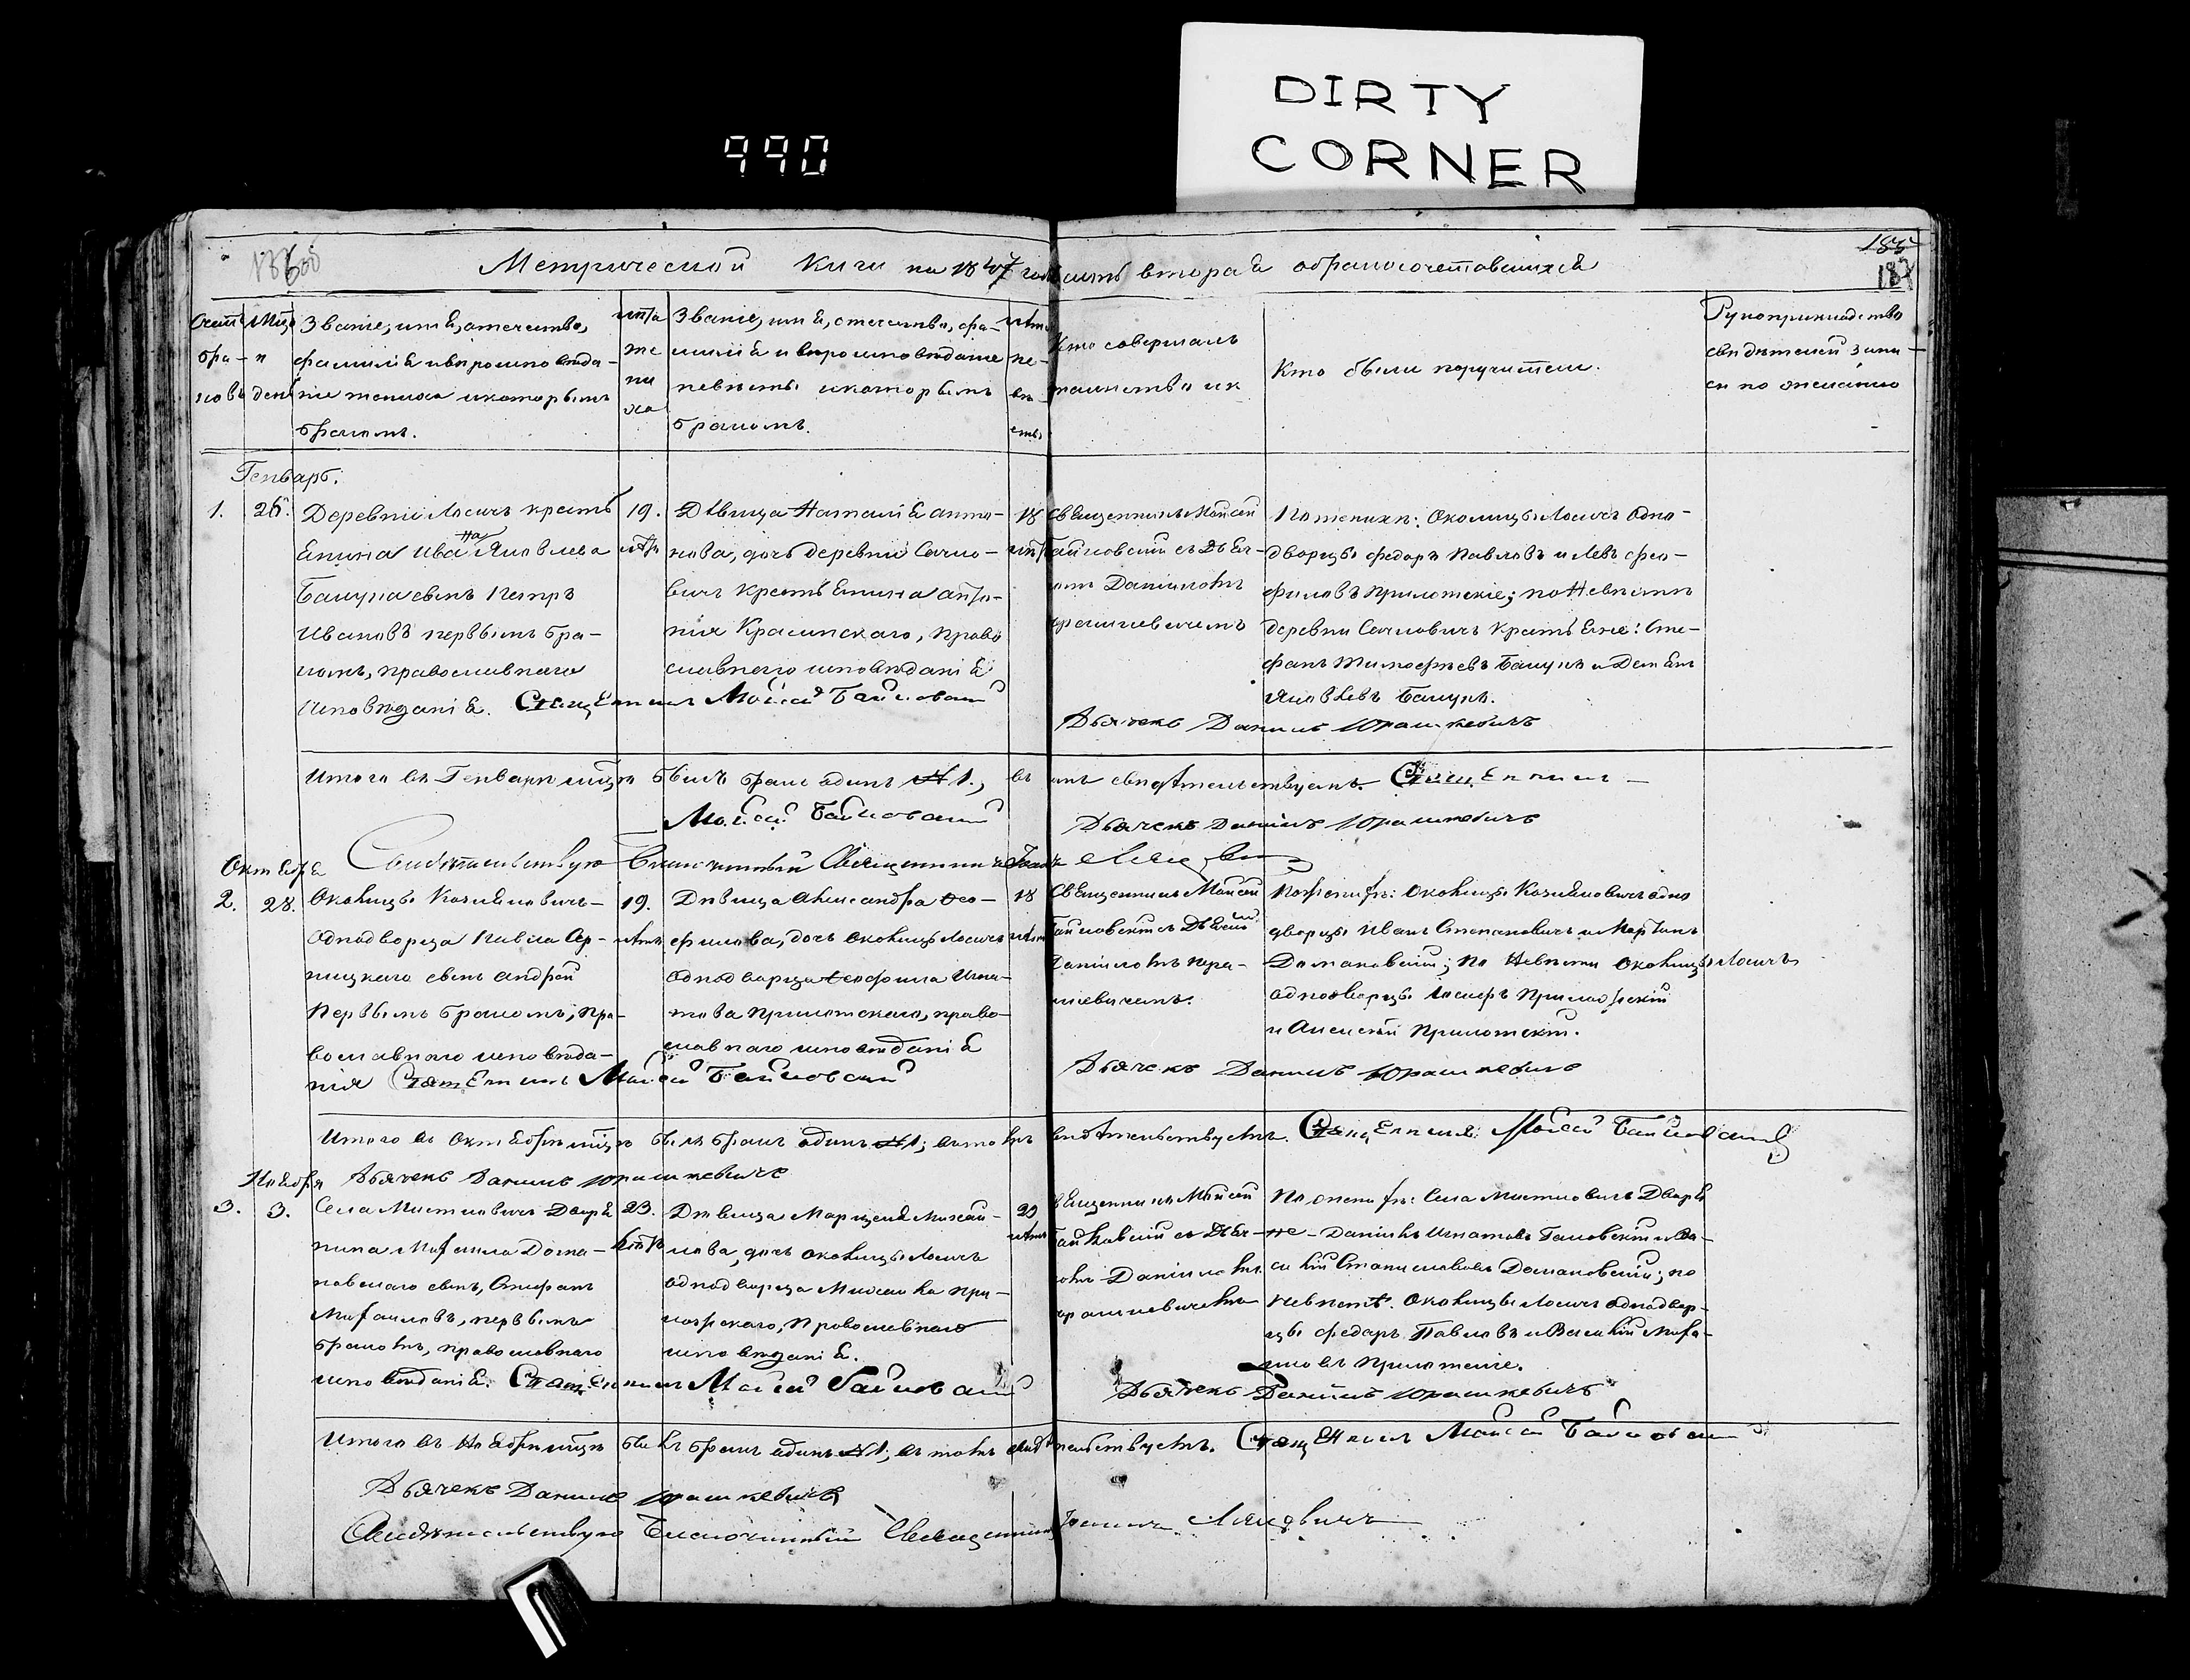 DIRTY
CORNER
990
Метрической Книги на 1847 годъ часть вторая о бракосочетавшихся
185
Счетъ браковъ
Мцъ и день
Званіе, имя, отечество,
фамилія и вѣроисповѣда-
ніе жениха и которымъ
бракомъ.
лѣта жениха
Званіе, имя, отечество, фа-
милія и вѣроисповѣданіе
невѣсты и которымъ
бракомъ.
лѣта невѣсты
Кто совершалъ
таинство и к
Кто были поручители.
Рукоприкладство
свидѣтелей записи по желанію
Генварь.
1.
26.
Деревни Лосичъ кресть
янина Ивана Яковлева
Бакуна сынъ Петръ
Ивановъ первымъ бра-
комъ, православнаго
исповѣданія.
19.
лѣтъ
Дѣвица Наталія Анто-
нова, дочь деревни Сачко-
вичъ крестьянина Анто-
нія Красинскаго, право
славнаго исповѣданія
18
лѣтъ
Священникъ Мойсей
Байковскій съ Дьяч-
комъ Даніиломъ
Юрашкевичемъ
По женихѣ: Околицы Лосичъ одно-
дворцы Федоръ Павловъ и Левъ Фео-
филовъ Прилотскіе; по невѣстѣ
деревни Сачковичъ крестьяне: Сте-
фанъ Тимофѣевъ Бакунъ и Демьян
Яковлевъ Бакунъ.
Священникъ Мойсей Байковскій
Дьячекъ Даниилъ Юрашкевичъ
Итого въ Генварѣ мцѣ былъ бракъ одинъ № 1, въ
емъ свидѣтельствуемъ. Священникъ
Мойсей Байковскій
Дьячекъ Даніилъ Юрашкевичъ
Свидѣтельствую Благочинный Священникъ Іоаннъ
Октября
2.
28.
Околицы
Однодворца Павла
сынъ Андрей
первымъ бракомъ, пра-
вославнаго исповѣда-
нія
19.
лѣтъ
Дѣвица Александра Ѳео-
филова, дочь околицы Лосичъ
однодворца Ѳеофила Игна-
това Прилотскаго, право-
славнаго исповѣданія
18
лѣтъ
Священникъ Мойсей
Байковскій съ Дьячкомъ
Даніиломъ Юра-
шкевичемъ.
По женихѣ: Околицы одно
дворцы Иванъ Степановичъ и Мартинъ
Домановскій; по невѣсти околицы Лосичъ
однодворцы Іосифъ Прилотскій
и Алексѣй Прилотскій.
Священникъ Мойсей Байковскій
Дьячекъ Даниилъ Юрашкевичъ
Итого въ Октябрѣ мцѣ былъ бракъ одинъ № 1; въ томъ
свидѣтельствуемъ. Священникъ Мойсей Байковскій
Дьячекъ Даниилъ Юрашкевичъ
Ноября
3.
3.
Села Мисткович Дворя
нина Михаила Дома-
новскаго сынъ, Стефанъ
Михаиловъ, первымъ
бракомъ, православнаго
исповѣданія.
23.
лѣтъ
Дѣвица Михаи-
лова, дочь околицы Лосичъ
однодворца Михаила При-
лотскаго, православнаго
исповѣданія.
20
лѣтъ
Священникъ Мойсей
Байковскій съ Дьяч-
комъ Даніиломъ
Юрашкевичемъ
По женихѣ: Села Мисткович Дворя
не Даніилъ Игнатовъ и Ва-
силій Станиславовъ Домановскій; по
невѣстѣ. Околицы Лосичъ однодвор-
цы Федоръ Павловъ и Василій Миха-
иловъ Прилотскіе.
Священникъ Мойсей Байковскій
Дьячекъ Даніилъ Юрашкевичъ
Итого въ Ноябрѣ мцѣ былъ бракъ одинъ № 1; въ томъ свидѣ
тельствуемъ. Священникъ Мойсей Байковскій
Дьячекъ Даниилъ Юрашкевичъ
Свидѣтельствую Благочинный Священникъ Іоаннъ